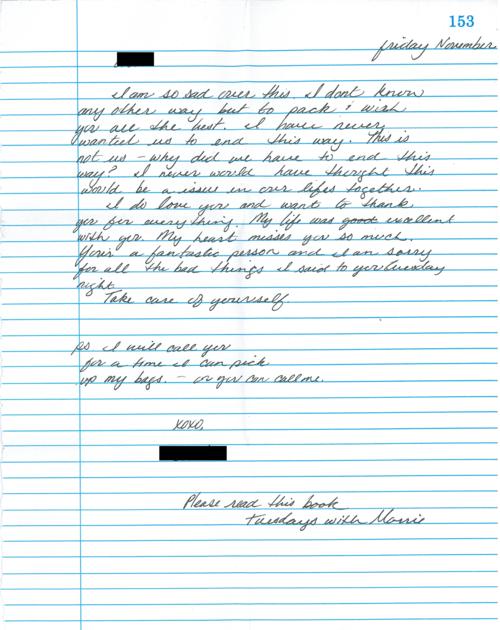 153
friday November
I am so sad over this. I dont know
any other way but to pack & wish
you all the best. I have never
wanted us to end this way. This is
not us - why did we have to end this
way? I never would have thought this
would be a issue in our lifes together.
I do love you and want to thank
you for everything. My life was good excellent
with you. My heart misses you so much.
Your a fantastic person and I am sorry
for all the bad things I said to you Tuesday
night.
Take care of yourself
ps I will call you
for a time I can pick
up my bags. - or you can call me.
xoxo,
Please read this book
Tuesdays with Morrie